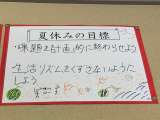 夏休みの目標
・課題を計画的に終わらせよう
・生活リズムをくずさないように
しよう